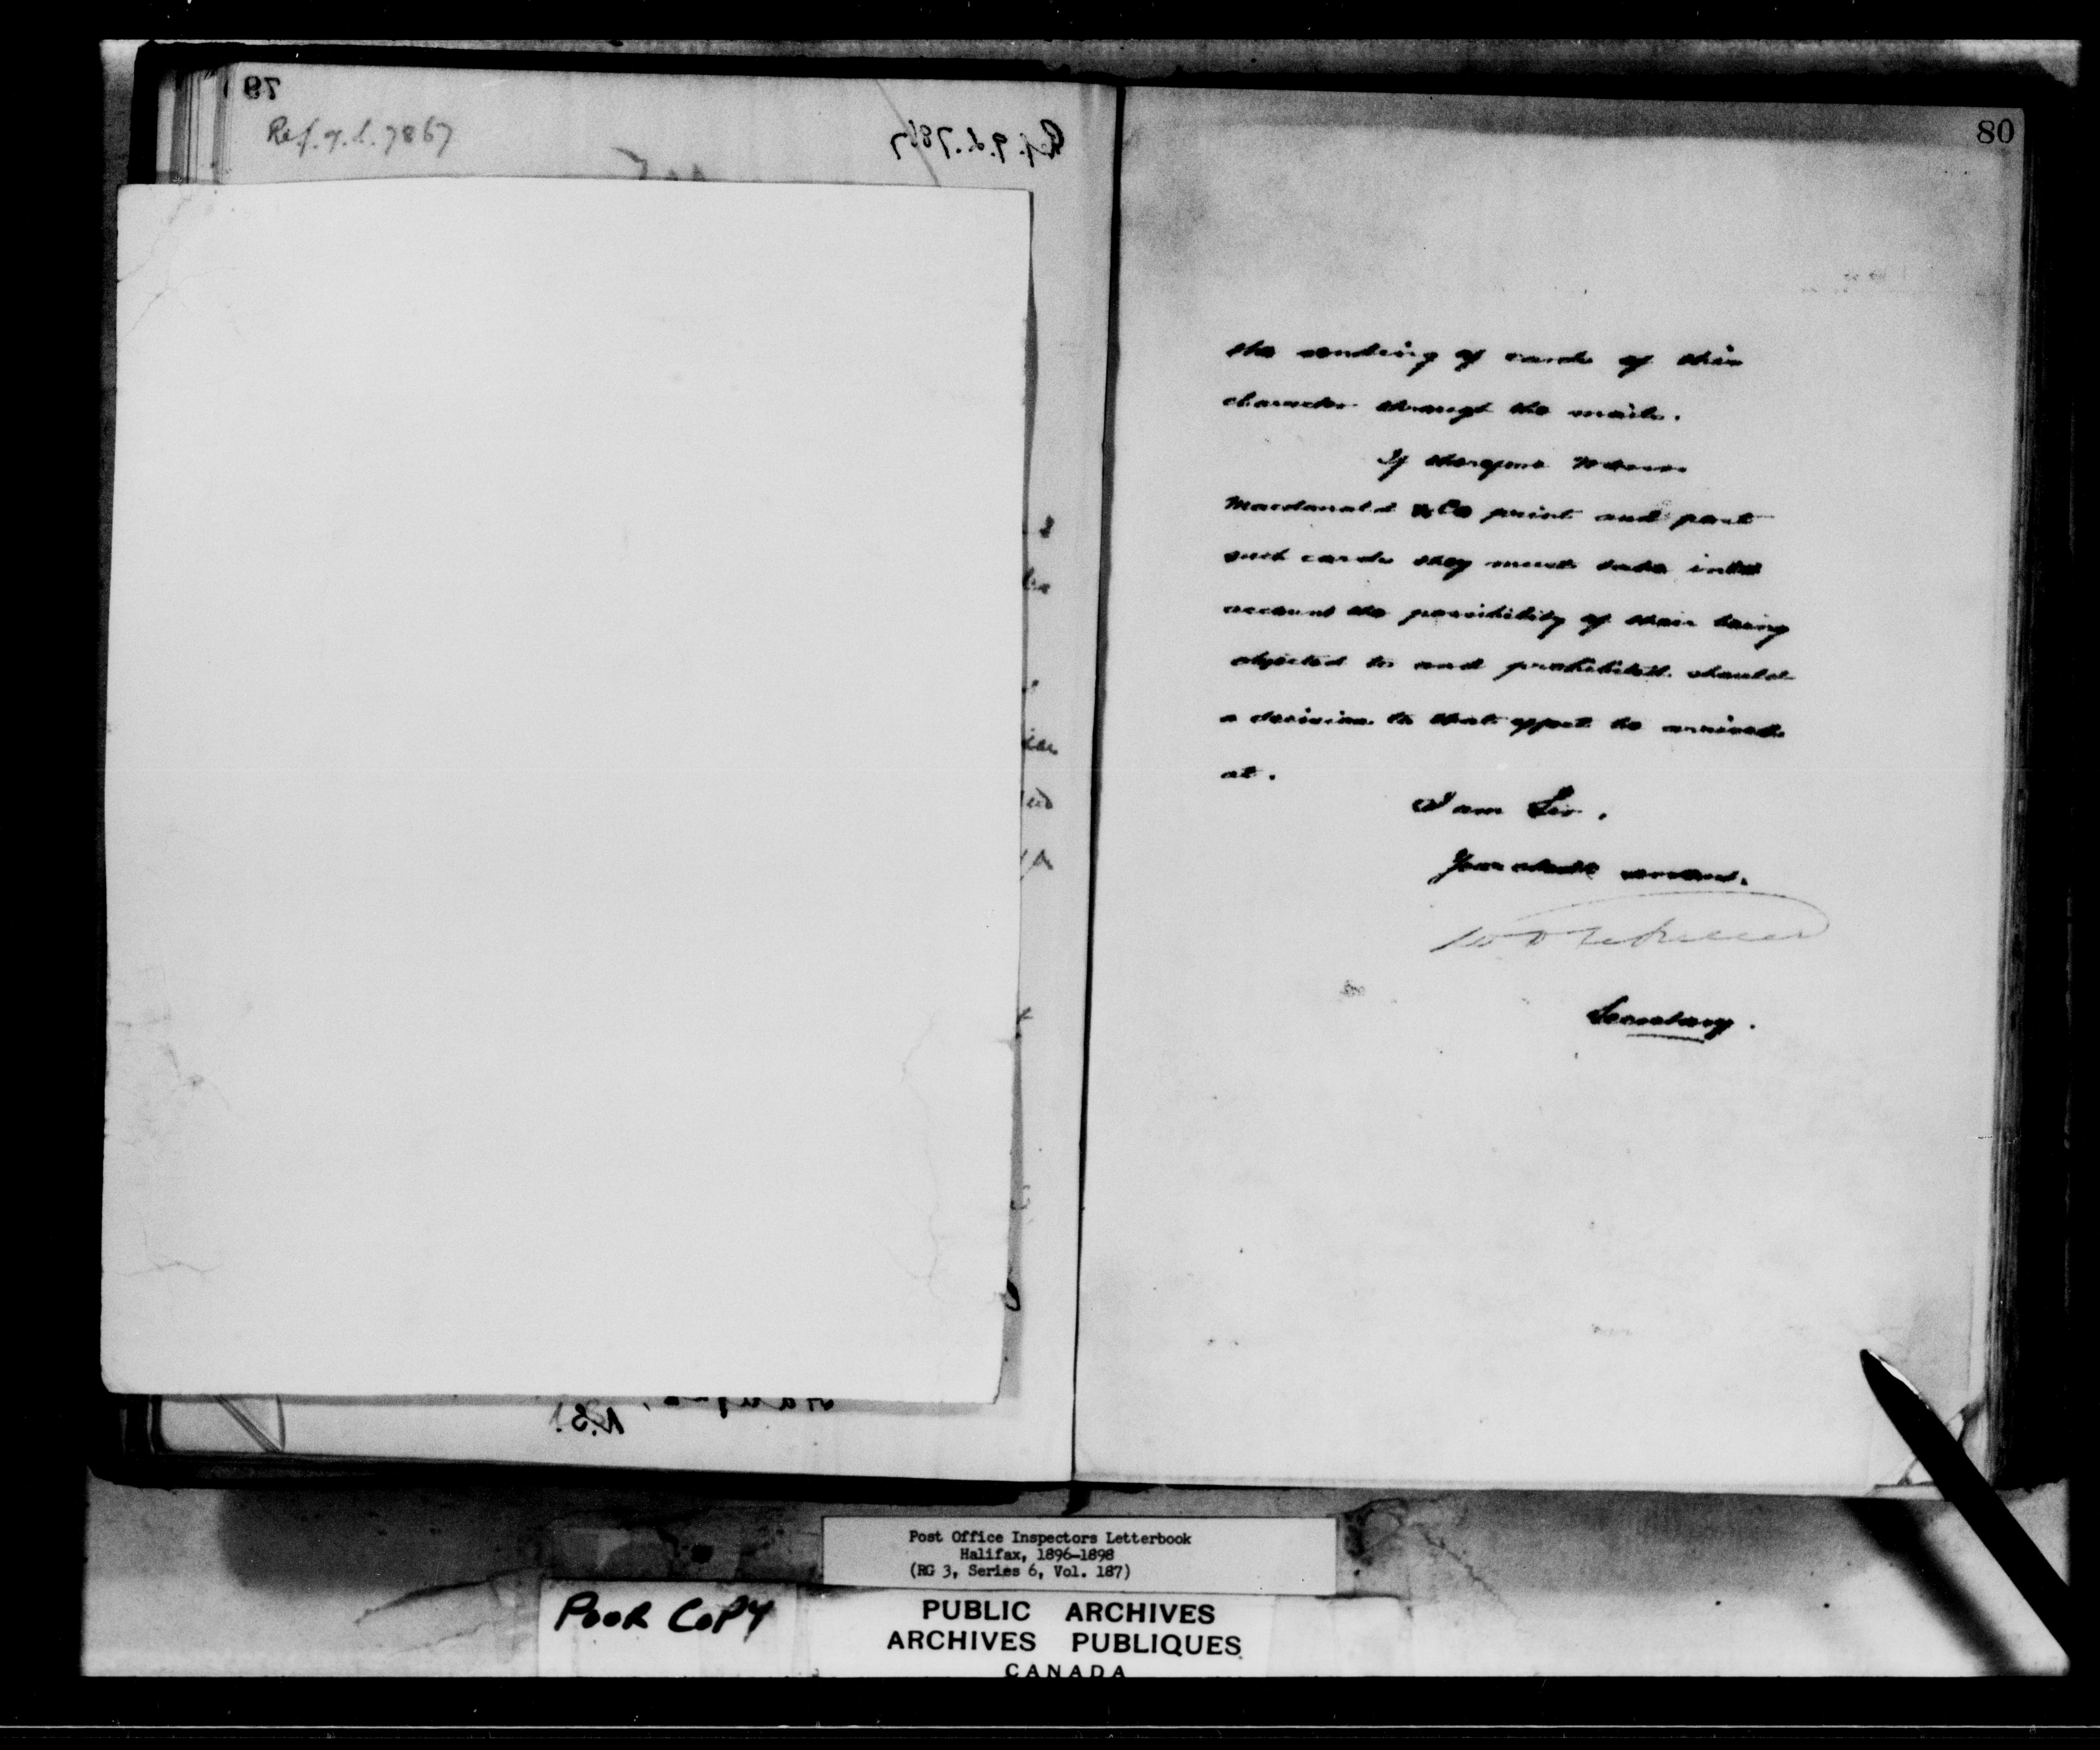 79
Ref. 9.L.7867
Ref. 9.L.7867
N.S.
80
the sending of cards of this
character through the mails.
If therefore Messrs
Macdonald & Co print and post
such cards they must take into
account the possibility of their being
objected to and prohibited should
a decision to that effect be arrived
at.
I am Sir,
Your obedt servant.
Secretary.
Post Office Inspectors Letterbook
Halifax, 1896-1898
(RG 3, Series 6, Vol. 187)
POOR COPY
PUBLIC ARCHIVES
ARCHIVES PUBLIQUES
CANADA